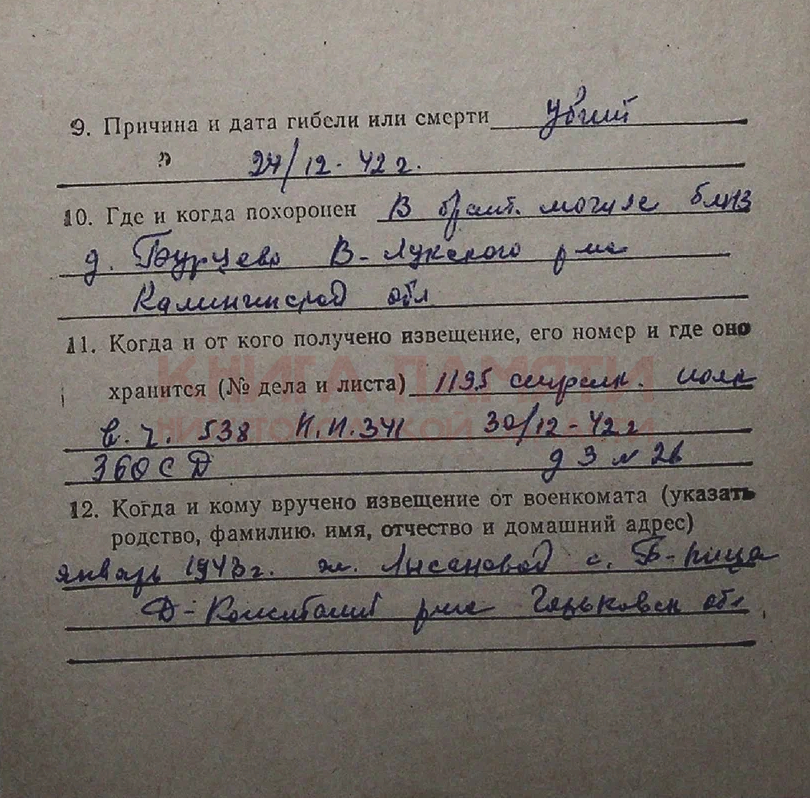 9. Причина и дата гибели или смерти Убит
" 24/12-42 г.
10. Где и когда похоронен В братс. могиле близ
д. Бурцево В-Лукского р-на
Калининской обл
11. Когда и от кого получено извещение, его номер и где оно
хранится (№ дела и листа) 1195 стрелк. полк
КНИГА ПАМЯТИ
в. ч. 538 И.И.341 30/12-42 г
НИЖЕГОРОДСКОЙ ОБЛАСТИ
360 С Д д 3 л 26
12. Когда и кому вручено извещение от военкомата (указать
родство, фамилию. имя, отчество и домашний адрес)
январь 1943 г. с.
Д-Констант р-на Горьковск обл